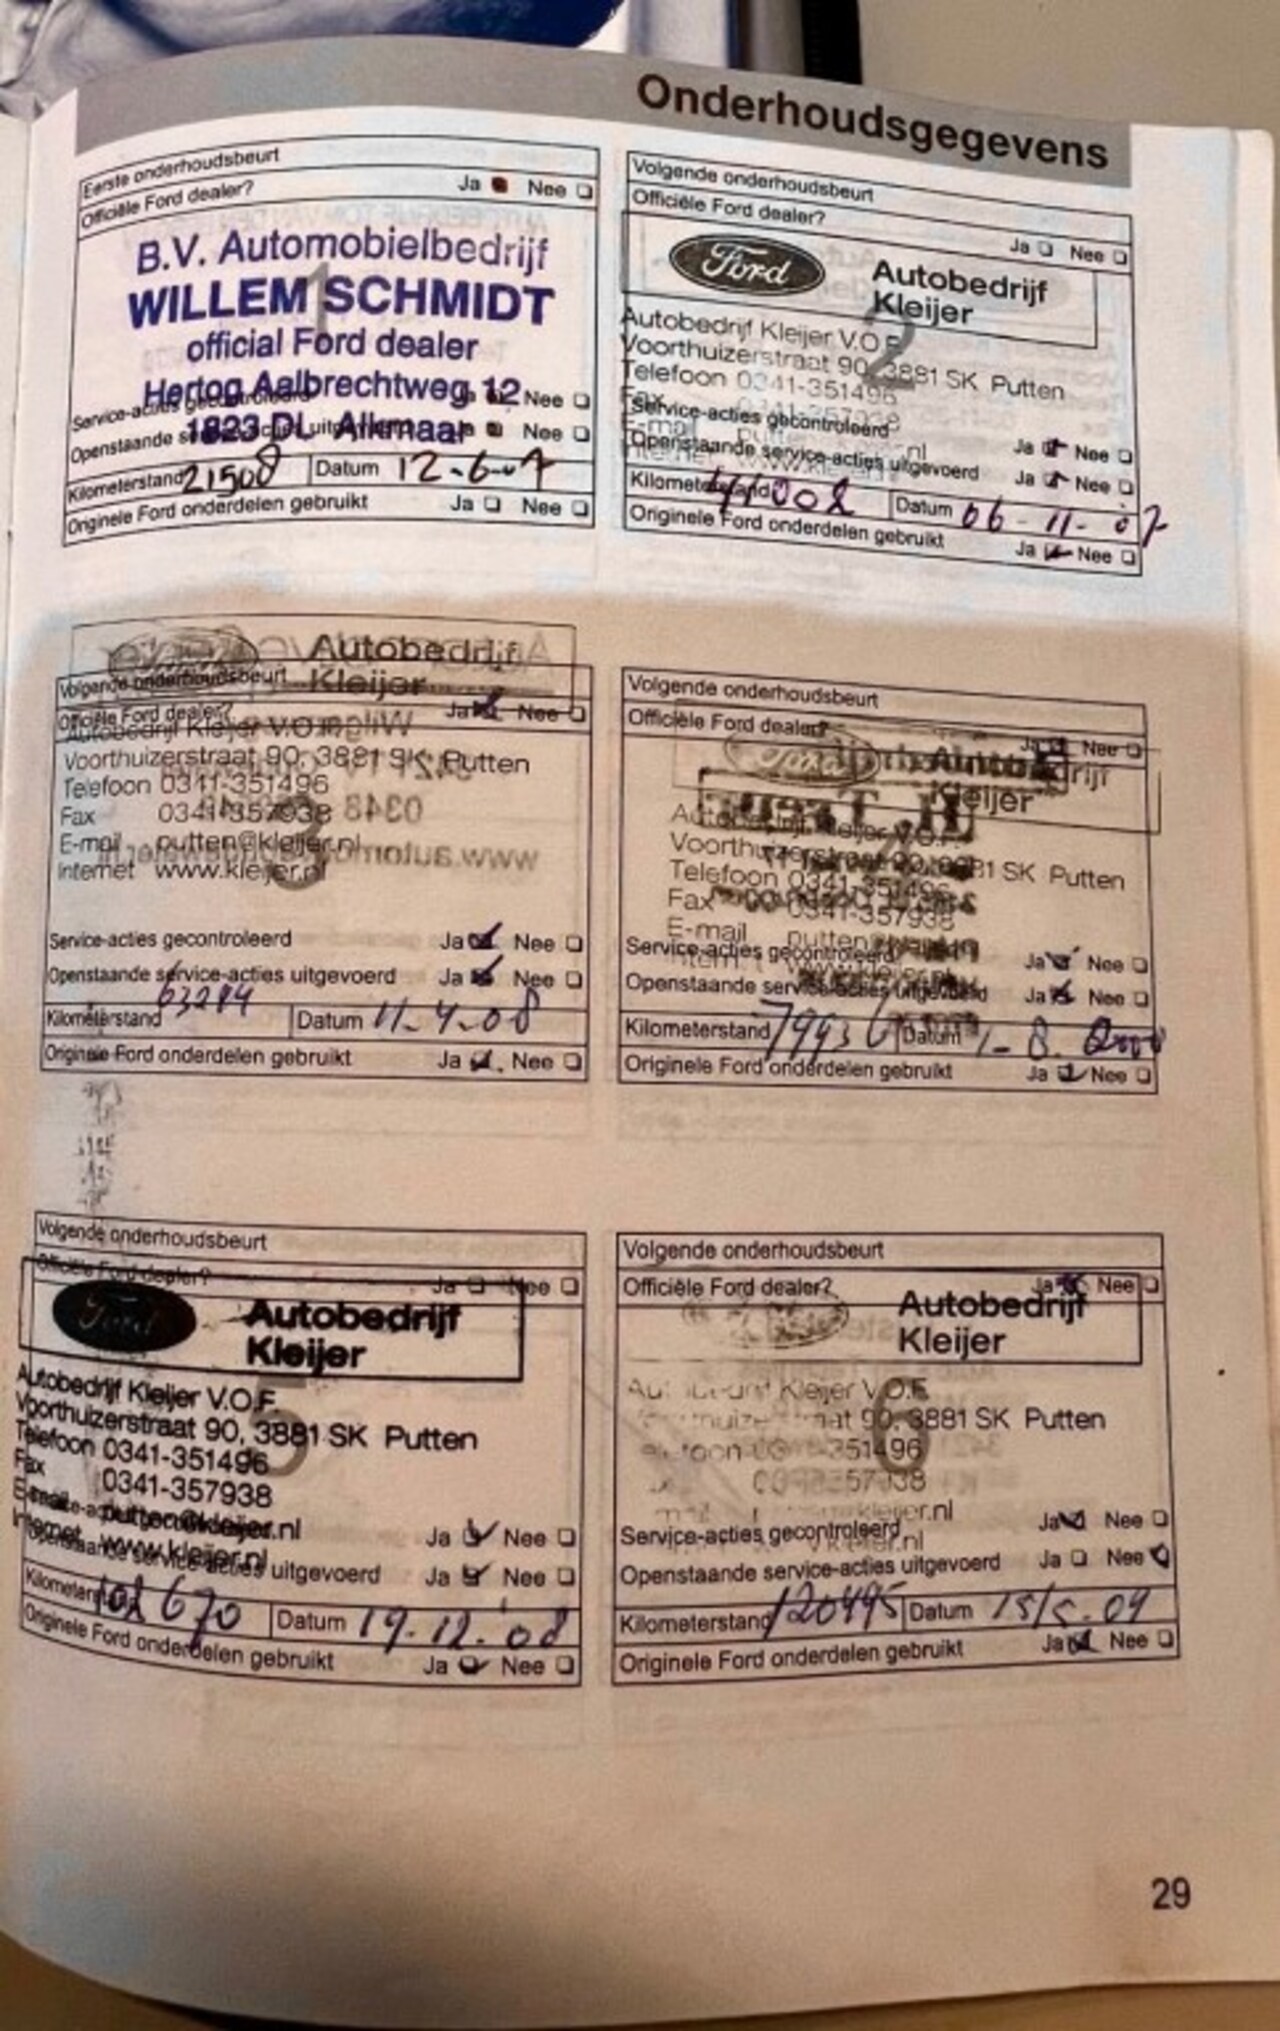 Onderhoudsgegevens
Eerste onderhoudsbeurt
Officiële Ford dealer? Ja Nee
B.V. Automobielbedrijf
WILLEM SCHMIDT
1
official Ford dealer
Hertog Aalbrechtweg 12
Service-acties gecontroleerd Nee
1823 DL Alkmaar
Openstaande service-acties uitgevoerd Ja Nee
Kilometerstand 21508 Datum 12-6-07
Originele Ford onderdelen gebruikt Ja Nee
Volgende onderhoudsbeurt
Officiële Ford dealer? Ja Nee
Ford Autobedrijf
Kleijer
2
Autobedrijf Kleijer V.O.F.
Voorthuizerstraat 90, 3881 SK Putten
Telefoon 0341-351496
Fax 0341-357938
Service-acties gecontroleerd Ja Nee
E-mail putten nl
Openstaande service-acties uitgevoerd Ja Nee
Internet www.kleijer
Kilometerstand 41002 Datum 06-11-07
Originele Ford onderdelen gebruikt Ja Nee
Autobedrijf
Kleijer
Volgende onderhoudsbeurt
Officiële Ford dealer? Ja Nee
Autobedrijf Kleijer V.O.F.
Voorthuizerstraat 90, 3881 SK Putten
Telefoon 0341-351496
Fax 0341-357938
3
E-mail putten@kleijer.nl
Internet www.kleijer.nl
Service-acties gecontroleerd Ja Nee
Openstaande service-acties uitgevoerd Ja Nee
Kilometerstand 63294 Datum 11-4-08
Originele Ford onderdelen gebruikt Ja Nee
Volgende onderhoudsbeurt
Officiële Ford dealer? Ja Nee
Ford Autobedrijf
Kleijer
Autobedrijf Kleijer V.O.F.
Voorthuizerstraat 90, 3881 SK Putten
Telefoon 0341-351496
Fax 0341-357938
E-mail putten
Service-acties gecontroleerd Ja Nee
Openstaande service-acties uitgevoerd Ja Nee
Kilometerstand 79936 Datum 1-8-2008
Originele Ford onderdelen gebruikt Ja Nee
Volgende onderhoudsbeurt
Officiële Ford dealer? Ja Nee
Ford Autobedrijf
Kleijer
5
Autobedrijf Kleijer V.O.F.
Voorthuizerstraat 90, 3881 SK Putten
Telefoon 0341-351496
Fax 0341-357938
E-mail putten@kleijer.nl
Service-acties gecontroleerd Ja Nee
Internet www.kleijer.nl
Openstaande service-acties uitgevoerd Ja Nee
Kilometerstand 102670 Datum 19-12-08
Originele Ford onderdelen gebruikt Ja Nee
Volgende onderhoudsbeurt
Officiële Ford dealer? Ja Nee
Autobedrijf
Kleijer
6
Kleijer V.O.F.
90, 3881 SK Putten
351496
57938
kleijer.nl
Service-acties gecontroleerd Ja Nee
Openstaande service-acties uitgevoerd Ja Nee
Kilometerstand 120495 Datum 15/5-09
Originele Ford onderdelen gebruikt Ja Nee
29